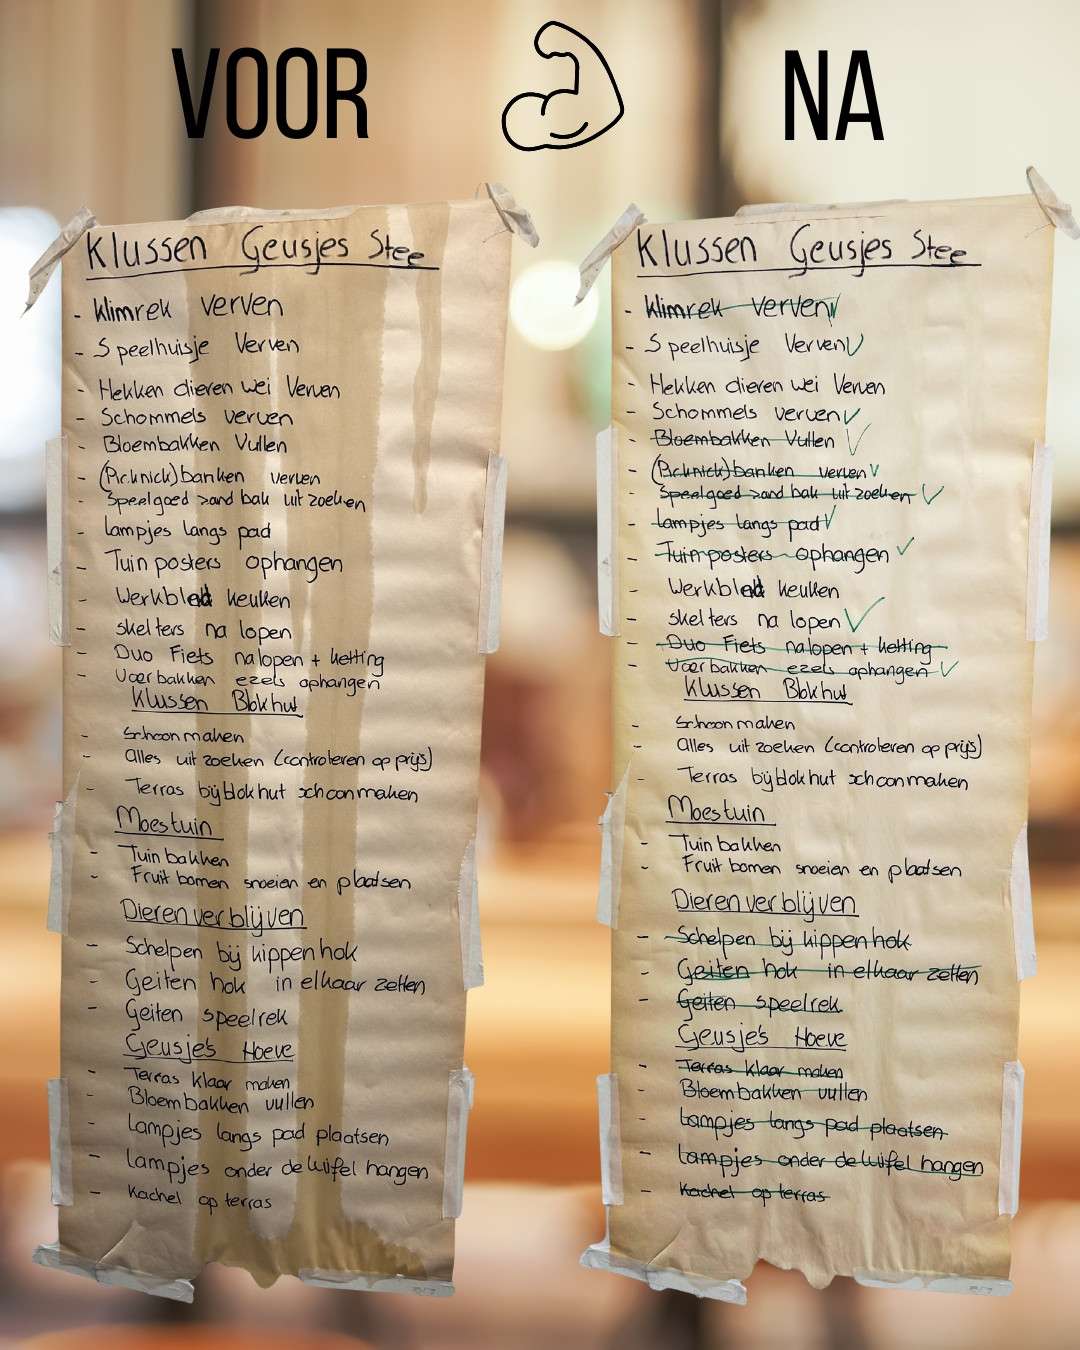 VOOR
NA
Klussen Geusjes Stee
- Klimrek verven
- Speelhuisje Verven
- Hekken dieren wei Verven
- Schommels verven
- Bloembakken Vullen
- (Picknick)banken verven
- Speelgoed zandbak uitzoeken
- Lampjes langs pad
- Tuinposters ophangen
- Werkblad keuken
- skelters na lopen
- Duo Fiets nalopen + ketting
- Voerbakken ezels ophangen
Klussen Blokhut
- Schoonmaken
- Alles uitzoeken (controleren op prijs)
- Terras bij blokhut schoonmaken
Moestuin
- Tuinbakken
- Fruit bomen snoeien en plaatsen
Dierenverblijven
- Schelpen bij kippenhok
- Geiten hok in elkaar zetten
- Geiten speelrek
Geusje's Hoeve
- Terras klaar maken
- Bloembakken vullen
- Lampjes langs pad plaatsen
- Lampjes onder de luifel hangen
- Kachel op terras
Klussen Geusjes Stee
- Klimrek verven ✓
- Speelhuisje Verven ✓
- Hekken dieren wei Verven
- Schommels verven ✓
- Bloembakken Vullen ✓
- (Picknick)banken verven ✓
- Speelgoed zandbak uitzoeken ✓
- Lampjes langs pad ✓
- Tuinposters ophangen ✓
- Werkblad keuken
- skelters na lopen ✓
- Duo Fiets nalopen + ketting
- Voerbakken ezels ophangen ✓
Klussen Blokhut
- Schoonmaken
- Alles uitzoeken (controleren op prijs)
- Terras bij blokhut schoonmaken
Moestuin
- Tuinbakken
- Fruit bomen snoeien en plaatsen
Dierenverblijven
- Schelpen bij kippenhok
- Geiten hok in elkaar zetten
- Geiten speelrek
Geusje's Hoeve
- Terras klaar maken
- Bloembakken vullen
- Lampjes langs pad plaatsen
- Lampjes onder de luifel hangen
- Kachel op terras